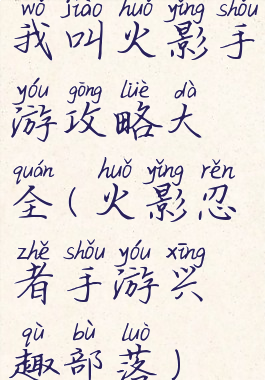 wǒ jiào huǒ yǐng shǒu
我叫火影手
yóu gōng lüè dà
游攻略大
quán huǒ yǐng rěn
全(火影忍
zhě shǒu yóu xīng
者手游兴
qù bù luò
趣部落)